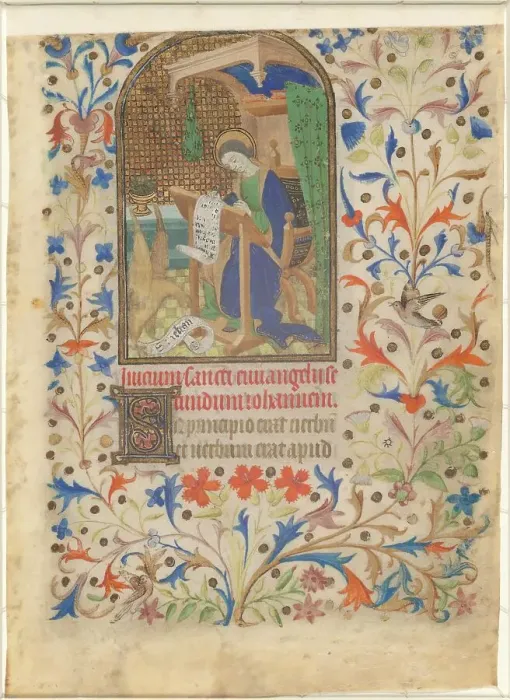 S iehan
Inicium sancti euuangelij se
cundum iohannem.
In principio erat uerbū
et uerbum erat apud